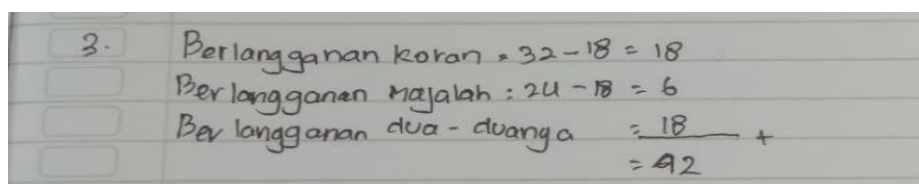 3. Berlangganan koran = 32 - 18 = 18
Berlangganan Majalah : 24 - 18 = 6
Berlangganan dua - duanga = 18 +
= 42